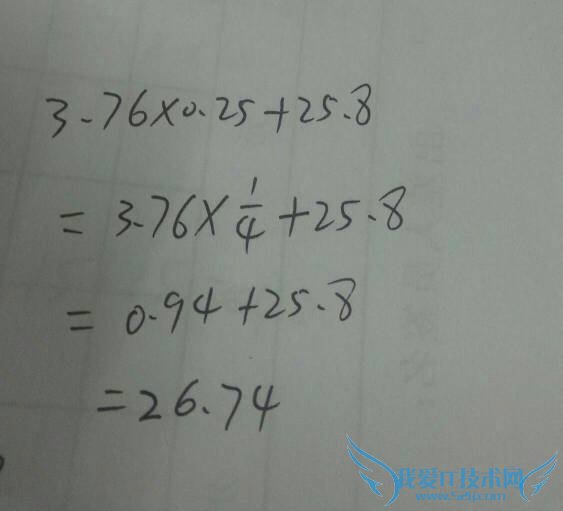 3.76×0.25+25.8
=3.76×1/4+25.8
=0.94+25.8
=26.74
我爱IT技术网